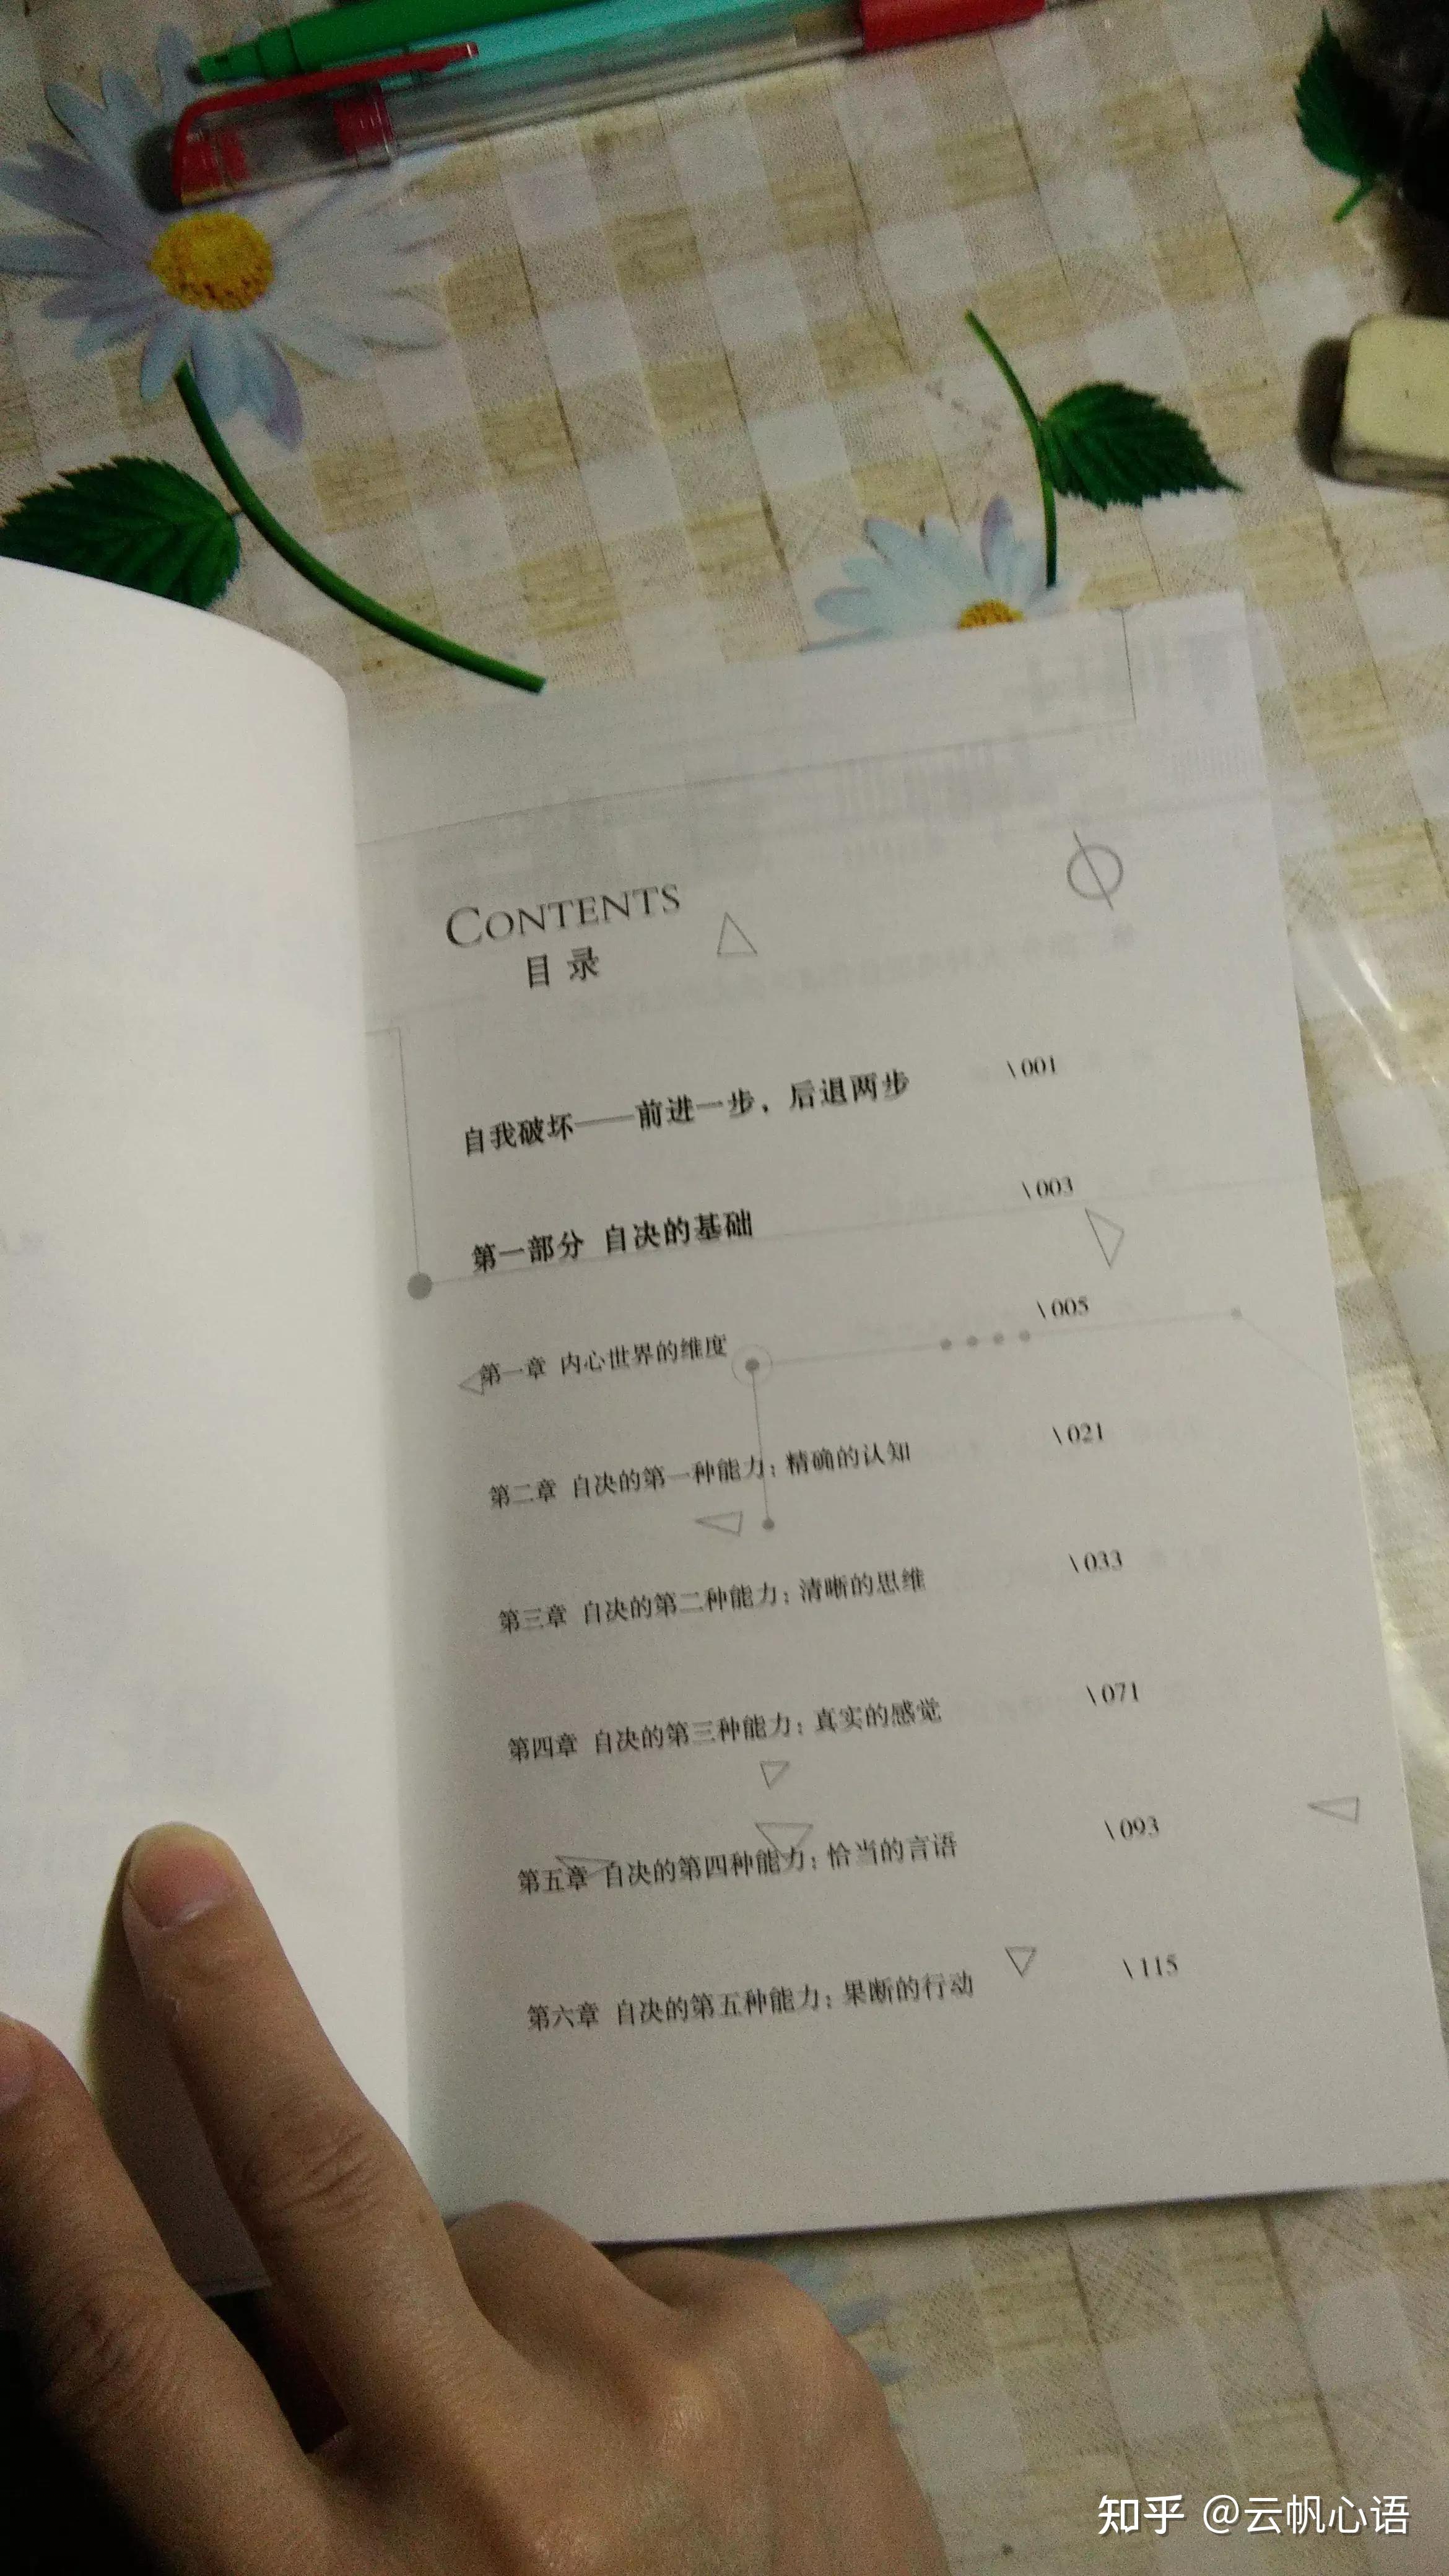 CONTENTS
目录
自我破坏——前进一步，后退两步 \001
第一部分 自决的基础 \003
第一章 内心世界的维度 \005
第二章 自决的第一种能力：精确的认知 \021
第三章 自决的第二种能力：清晰的思维 \033
第四章 自决的第三种能力：真实的感觉 \071
第五章 自决的第四种能力：恰当的言语 \093
第六章 自决的第五种能力：果断的行动 \115
知乎 @云帆心语